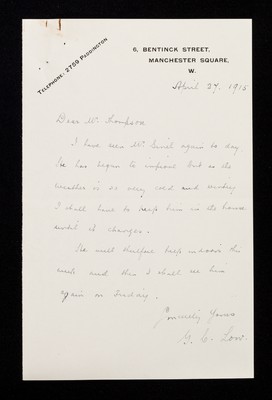 TELEPHONE: 2759 PADDINGTON
6, BENTINCK STREET,
MANCHESTER SQUARE,
W.
April 27. 1915
Dear Mr.
I have seen Mr. again to day
He has began to improve but as the
weather is so very cold and windy
I shall have to keep him in the house
until it changes.
He must therefore keep indoors this
week and then I shall see him
again on
Sincerely Yours
G. C. Low.